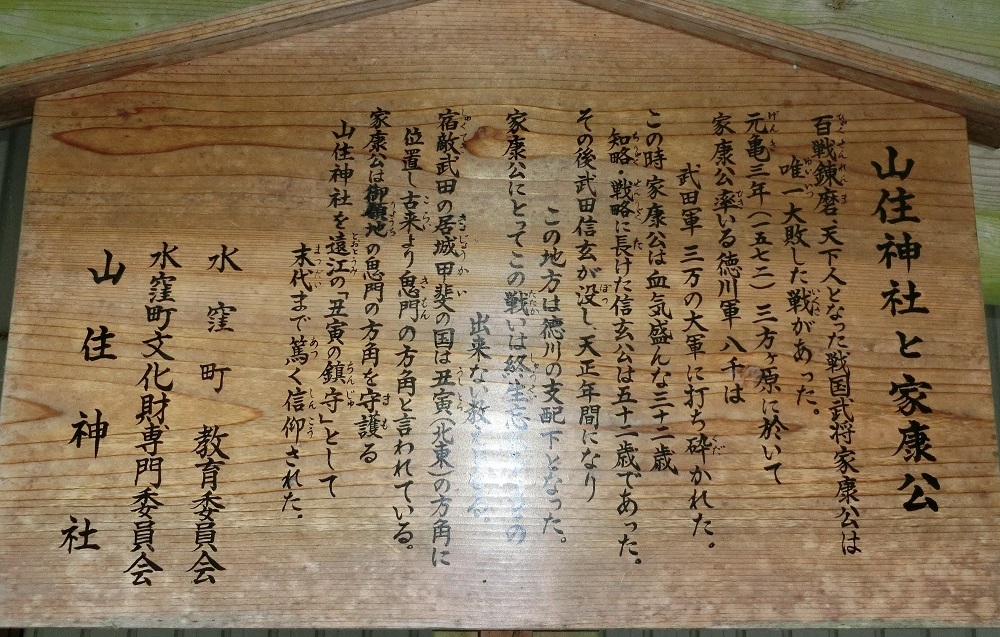 山住神社と家康公
百戦錬磨天下人となった戦国武将家康公は
唯一大敗した戦があった。
元亀三年(一五七二)三方ヶ原に於いて
家康公率いる徳川軍 八千は
武田軍 三万の大軍に打ち砕かれた。
この時 家康公は血気盛んな三十二歳
知略・戦略に長けた信玄公は五十一歳であった。
その後武田信玄が没し天正年間になり
この地方は徳川の支配下となった。
家康公にとってこの戦いは終生忘
出来ない教
宿敵武田の居城甲斐の国は丑寅(北東)の方角に
位置し古来より鬼門の方角と言われている。
家康公は御願地の鬼門の方角を守護る
山住神社を遠江の「丑寅の鎮守」として
末代まで篤く信仰された。
水窪町 教育委員会
水窪町文化財専門委員会
山住神社